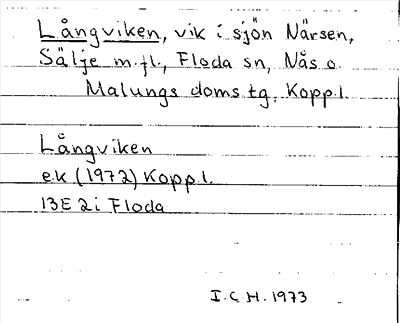 Långviken, vik i sjön Närsen,
Sälje m.fl., Floda sn, Nås o.
Malungs doms.tg, Kopp.l.
Långviken
e.k (1972) Kopp.l.
13E 2i Floda
I.C.H. 1973